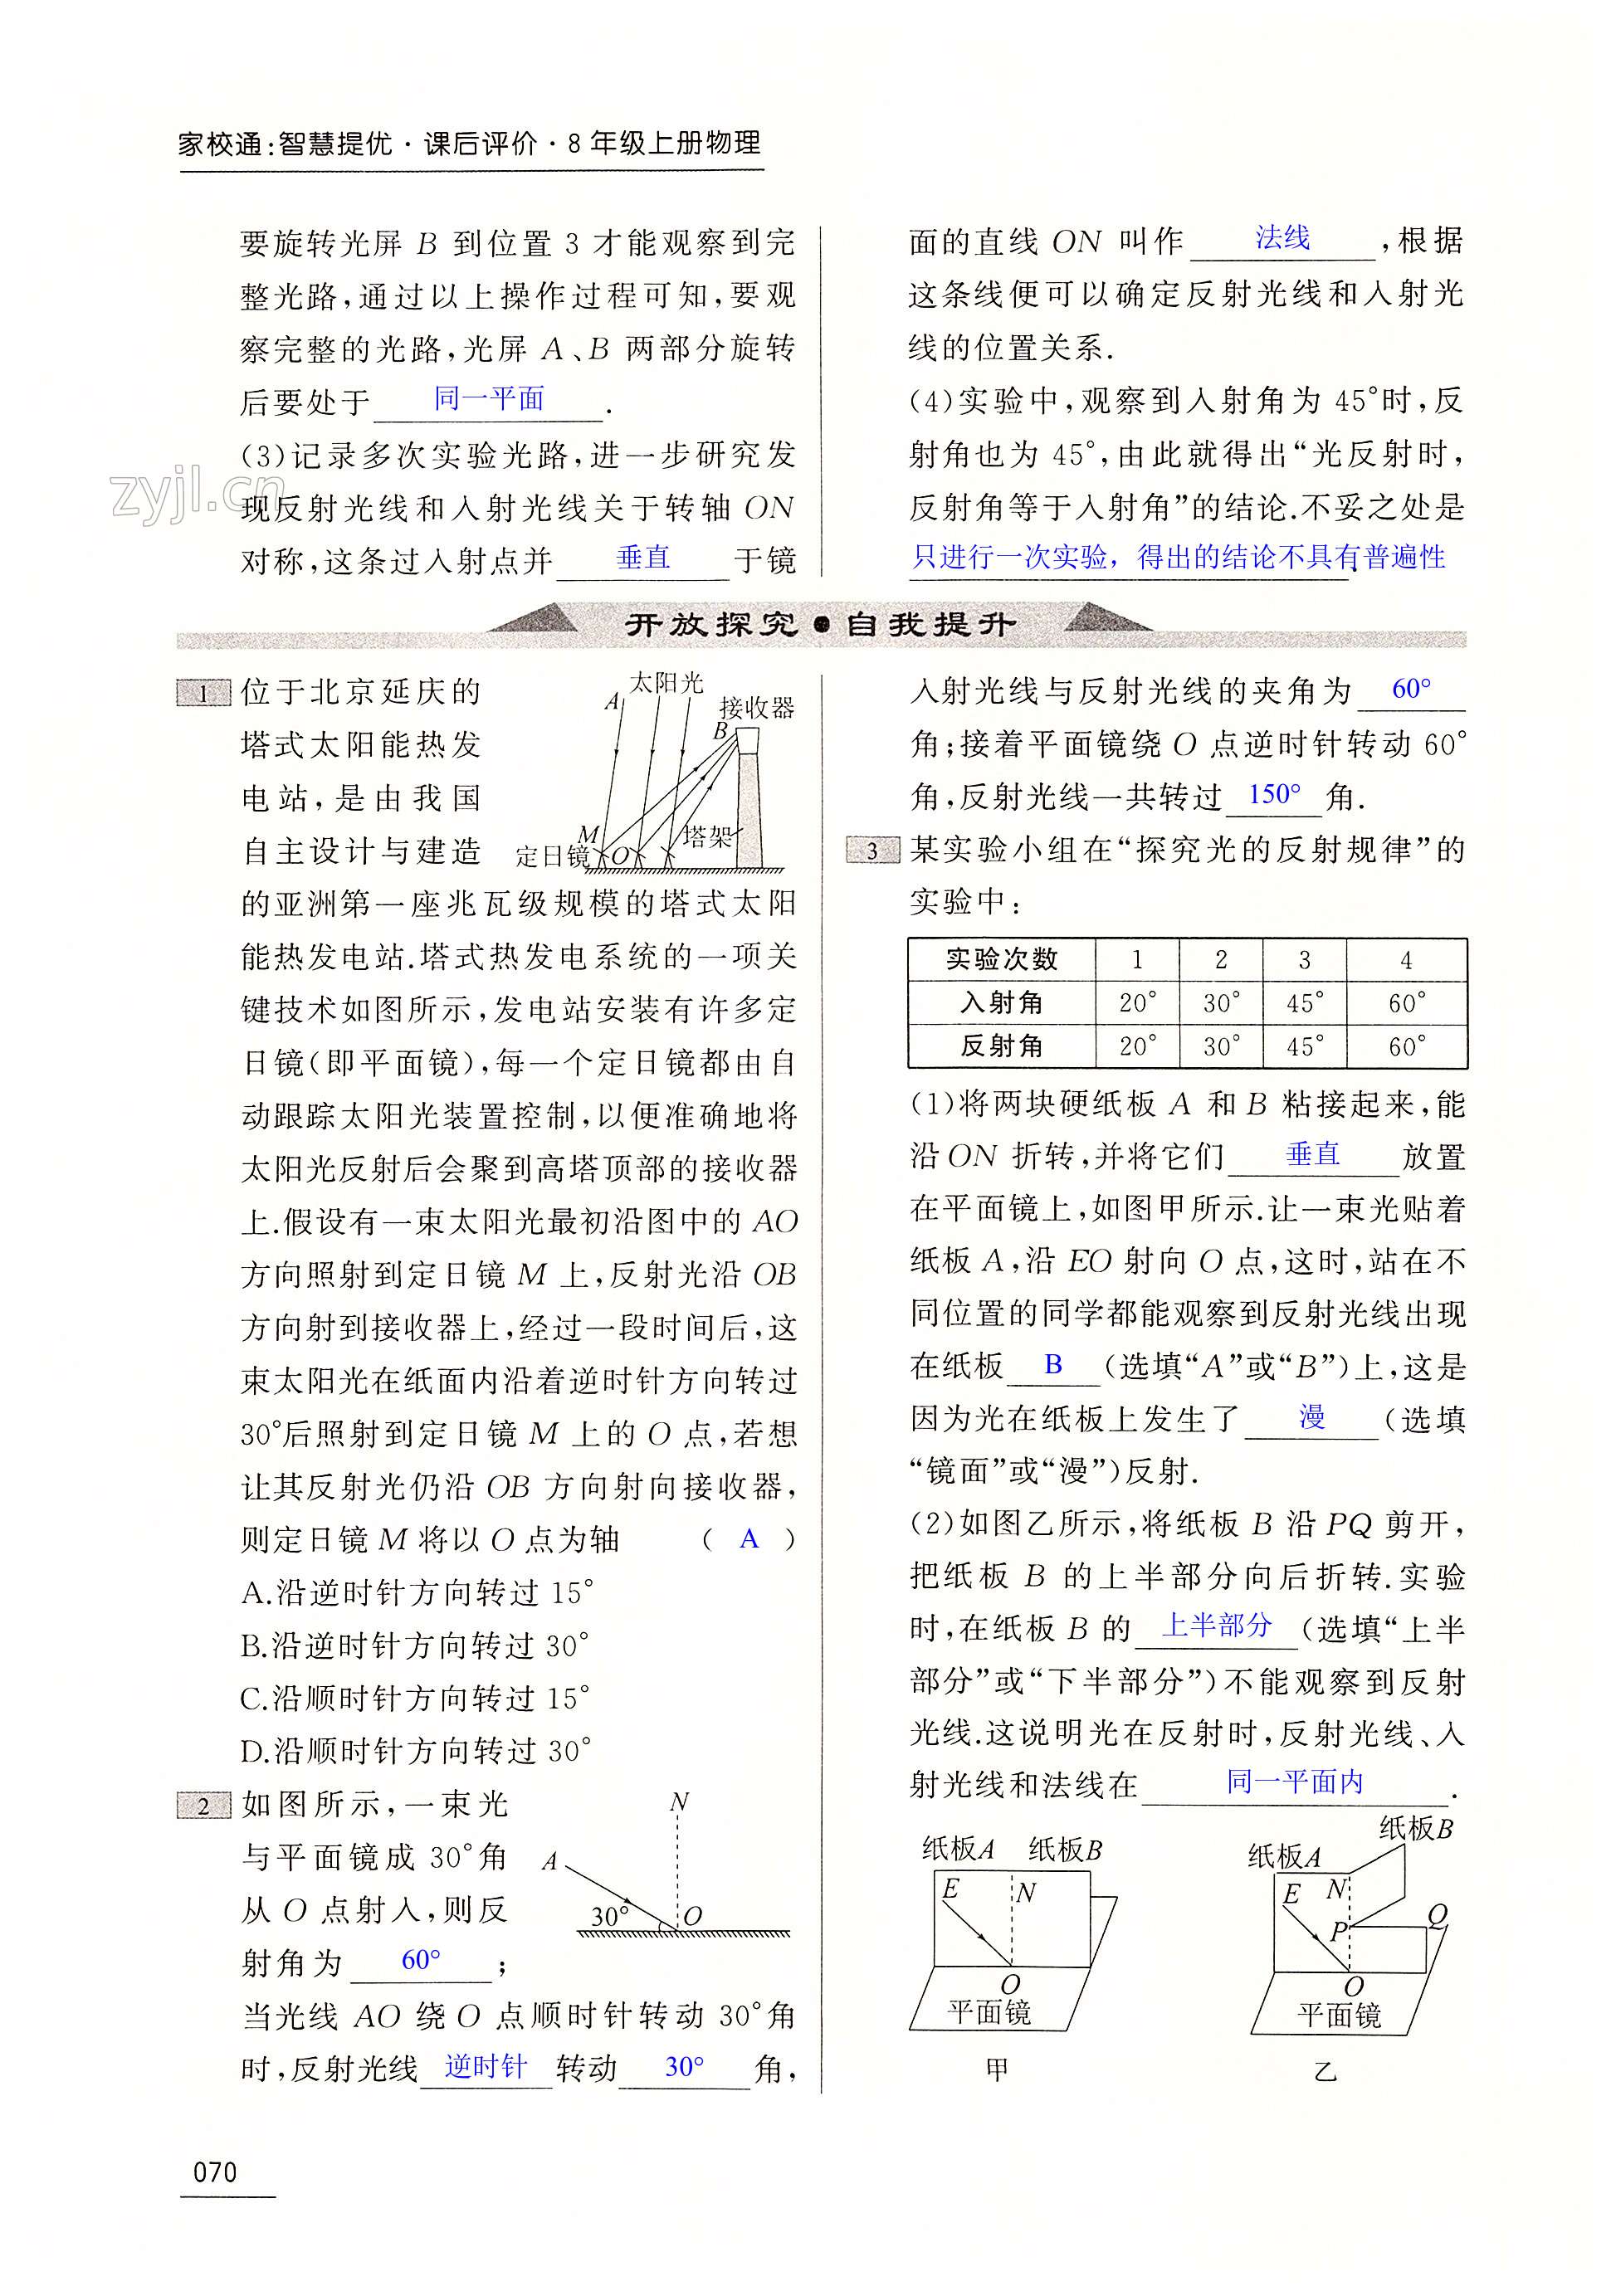 家校通:智慧提优·课后评价·8年级上册物理
要旋转光屏 B 到位置 3 才能观察到完
整光路,通过以上操作过程可知,要观
察完整的光路,光屏 A、B 两部分旋转
后要处于 同一平面 .
(3)记录多次实验光路,进一步研究发
现反射光线和入射光线关于转轴 ON
对称,这条过入射点并 垂直 于镜
zyjl.cn
面的直线 ON 叫作 法线 ,根据
这条线便可以确定反射光线和入射光
线的位置关系.
(4)实验中,观察到入射角为 45°时,反
射角也为 45°,由此就得出“光反射时,
反射角等于入射角”的结论.不妥之处是
只进行一次实验，得出的结论不具有普遍性.
开放探究●自我提升
1 位于北京延庆的
塔式太阳能热发
电站,是由我国
自主设计与建造
的亚洲第一座兆瓦级规模的塔式太阳
能热发电站.塔式热发电系统的一项关
键技术如图所示,发电站安装有许多定
日镜(即平面镜),每一个定日镜都由自
动跟踪太阳光装置控制,以便准确地将
太阳光反射后会聚到高塔顶部的接收器
上.假设有一束太阳光最初沿图中的 AO
方向照射到定日镜 M 上,反射光沿 OB
方向射到接收器上,经过一段时间后,这
束太阳光在纸面内沿着逆时针方向转过
30°后照射到定日镜 M 上的 O 点,若想
让其反射光仍沿 OB 方向射向接收器,
则定日镜 M 将以 O 点为轴 ( A )
A.沿逆时针方向转过 15°
B.沿逆时针方向转过 30°
C.沿顺时针方向转过 15°
D.沿顺时针方向转过 30°
太阳光
A
接收器
B
M
塔架
定日镜
O
2 如图所示,一束光
与平面镜成 30°角
从 O 点射入,则反
射角为 60° ;
当光线 AO 绕 O 点顺时针转动 30°角
时,反射光线 逆时针 转动 30° 角,
N
A
30°
O
入射光线与反射光线的夹角为 60°
角;接着平面镜绕 O 点逆时针转动 60°
角,反射光线一共转过 150° 角.
3 某实验小组在“探究光的反射规律”的
实验中:
实验次数 1 2 3 4
入射角 20° 30° 45° 60°
反射角 20° 30° 45° 60°
(1)将两块硬纸板 A 和 B 粘接起来,能
沿 ON 折转,并将它们 垂直 放置
在平面镜上,如图甲所示.让一束光贴着
纸板 A,沿 EO 射向 O 点,这时,站在不
同位置的同学都能观察到反射光线出现
在纸板 B (选填“A”或“B”)上,这是
因为光在纸板上发生了 漫 (选填
“镜面”或“漫”)反射.
(2)如图乙所示,将纸板 B 沿 PQ 剪开,
把纸板 B 的上半部分向后折转.实验
时,在纸板 B 的 上半部分 (选填“上半
部分”或“下半部分”)不能观察到反射
光线.这说明光在反射时,反射光线、入
射光线和法线在 同一平面内 .
纸板A 纸板B
E N
O
平面镜
甲
纸板B
纸板A
E N
P Q
O
平面镜
乙
070